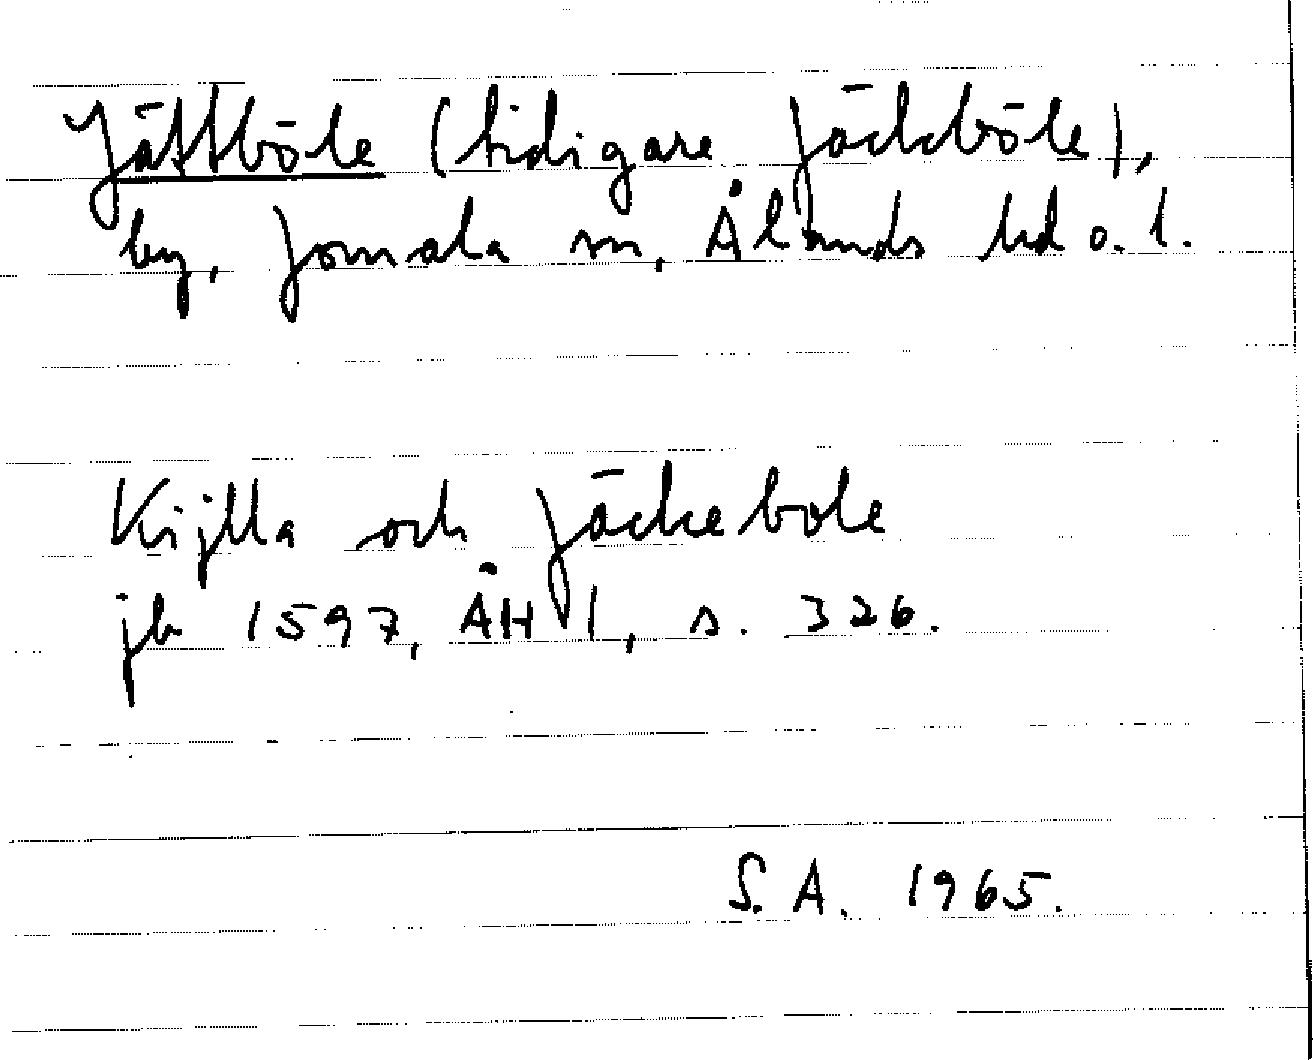 Jättböle (tidigare Jäckböle),
by, Jomala sn, Ålands hd o. l.
Kijlla och Jäckebole
jb 1597, ÅH I, s. 326.
S. A. 1965.